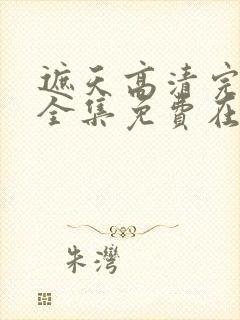 遮天高清完
全集免費在
朱灣